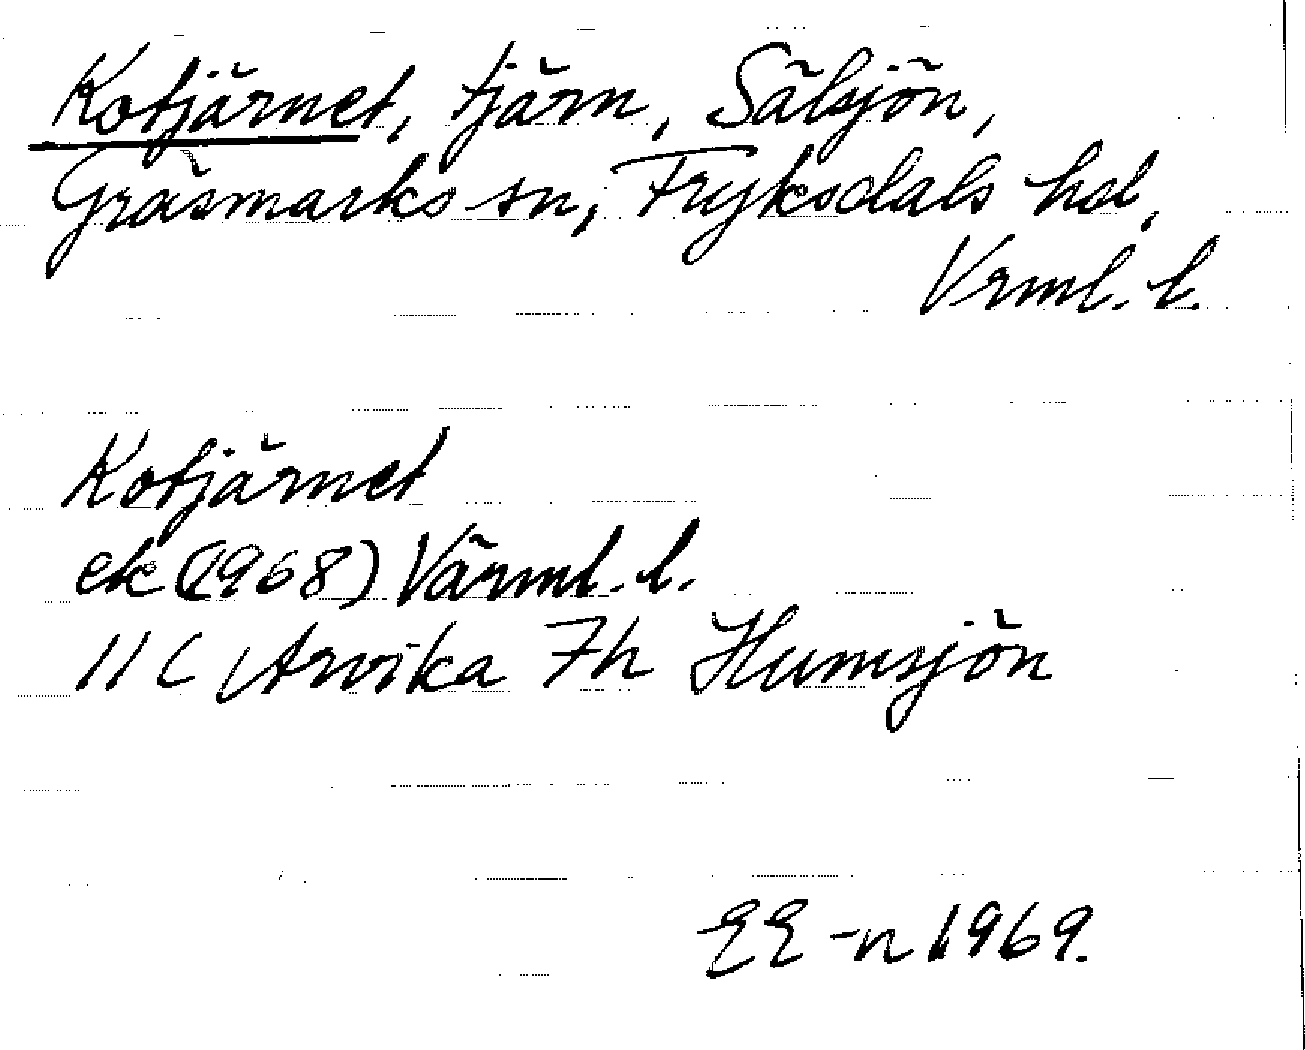 Kotjärnet, tjärn, Sälsjön,
Gräsmarks sn, Fryksdals hd,
Vrml. l.
Kotjärnet
ek (1968) Värml. l.
11 C Arvika 7h Humsjön
EE-n 1969.